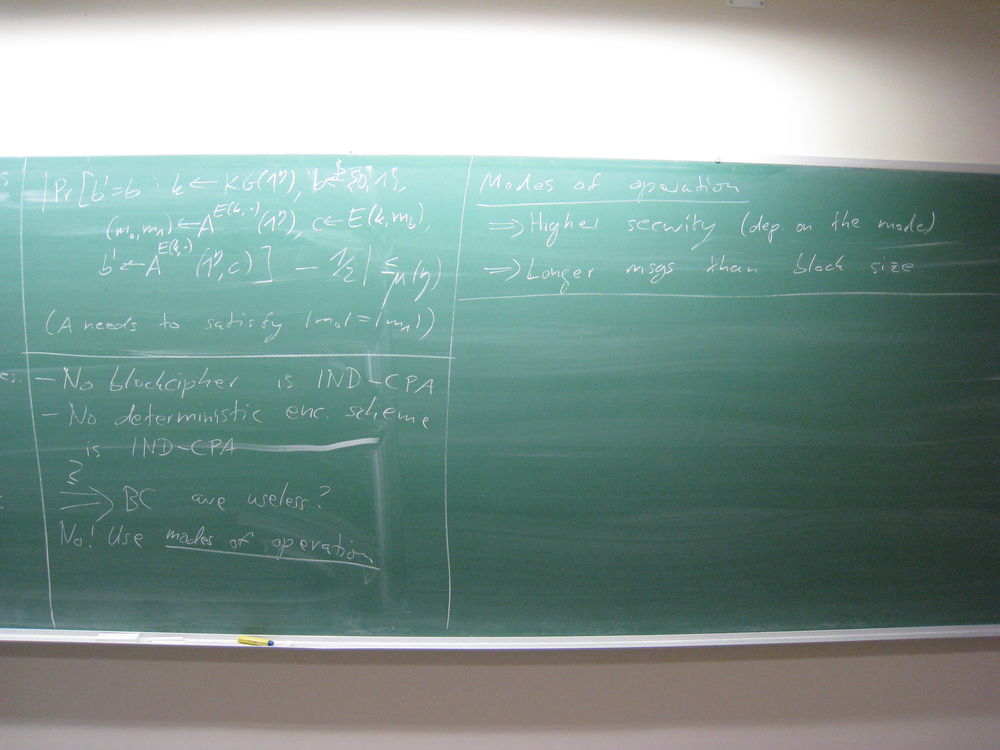 s
|Pr[b'=b : k ← KG(1^η), b ←$ {0,1},
(m₀,m₁) ← A^{E(k,·)}(1^η), c ← E(k,m_b),
b' ← A^{E(k,·)}(1^η,c)] - 1/2 | ≤ μ(η)
(A needs to satisfy |m₀|=|m₁|)
es.
- No blockcipher is IND-CPA
- No deterministic enc. scheme
is IND-CPA
?
⇒ BC are useless?
No! Use modes of operation
Modes of operation
⇒ Higher security (dep. on the mode)
⇒ Longer msgs than block size